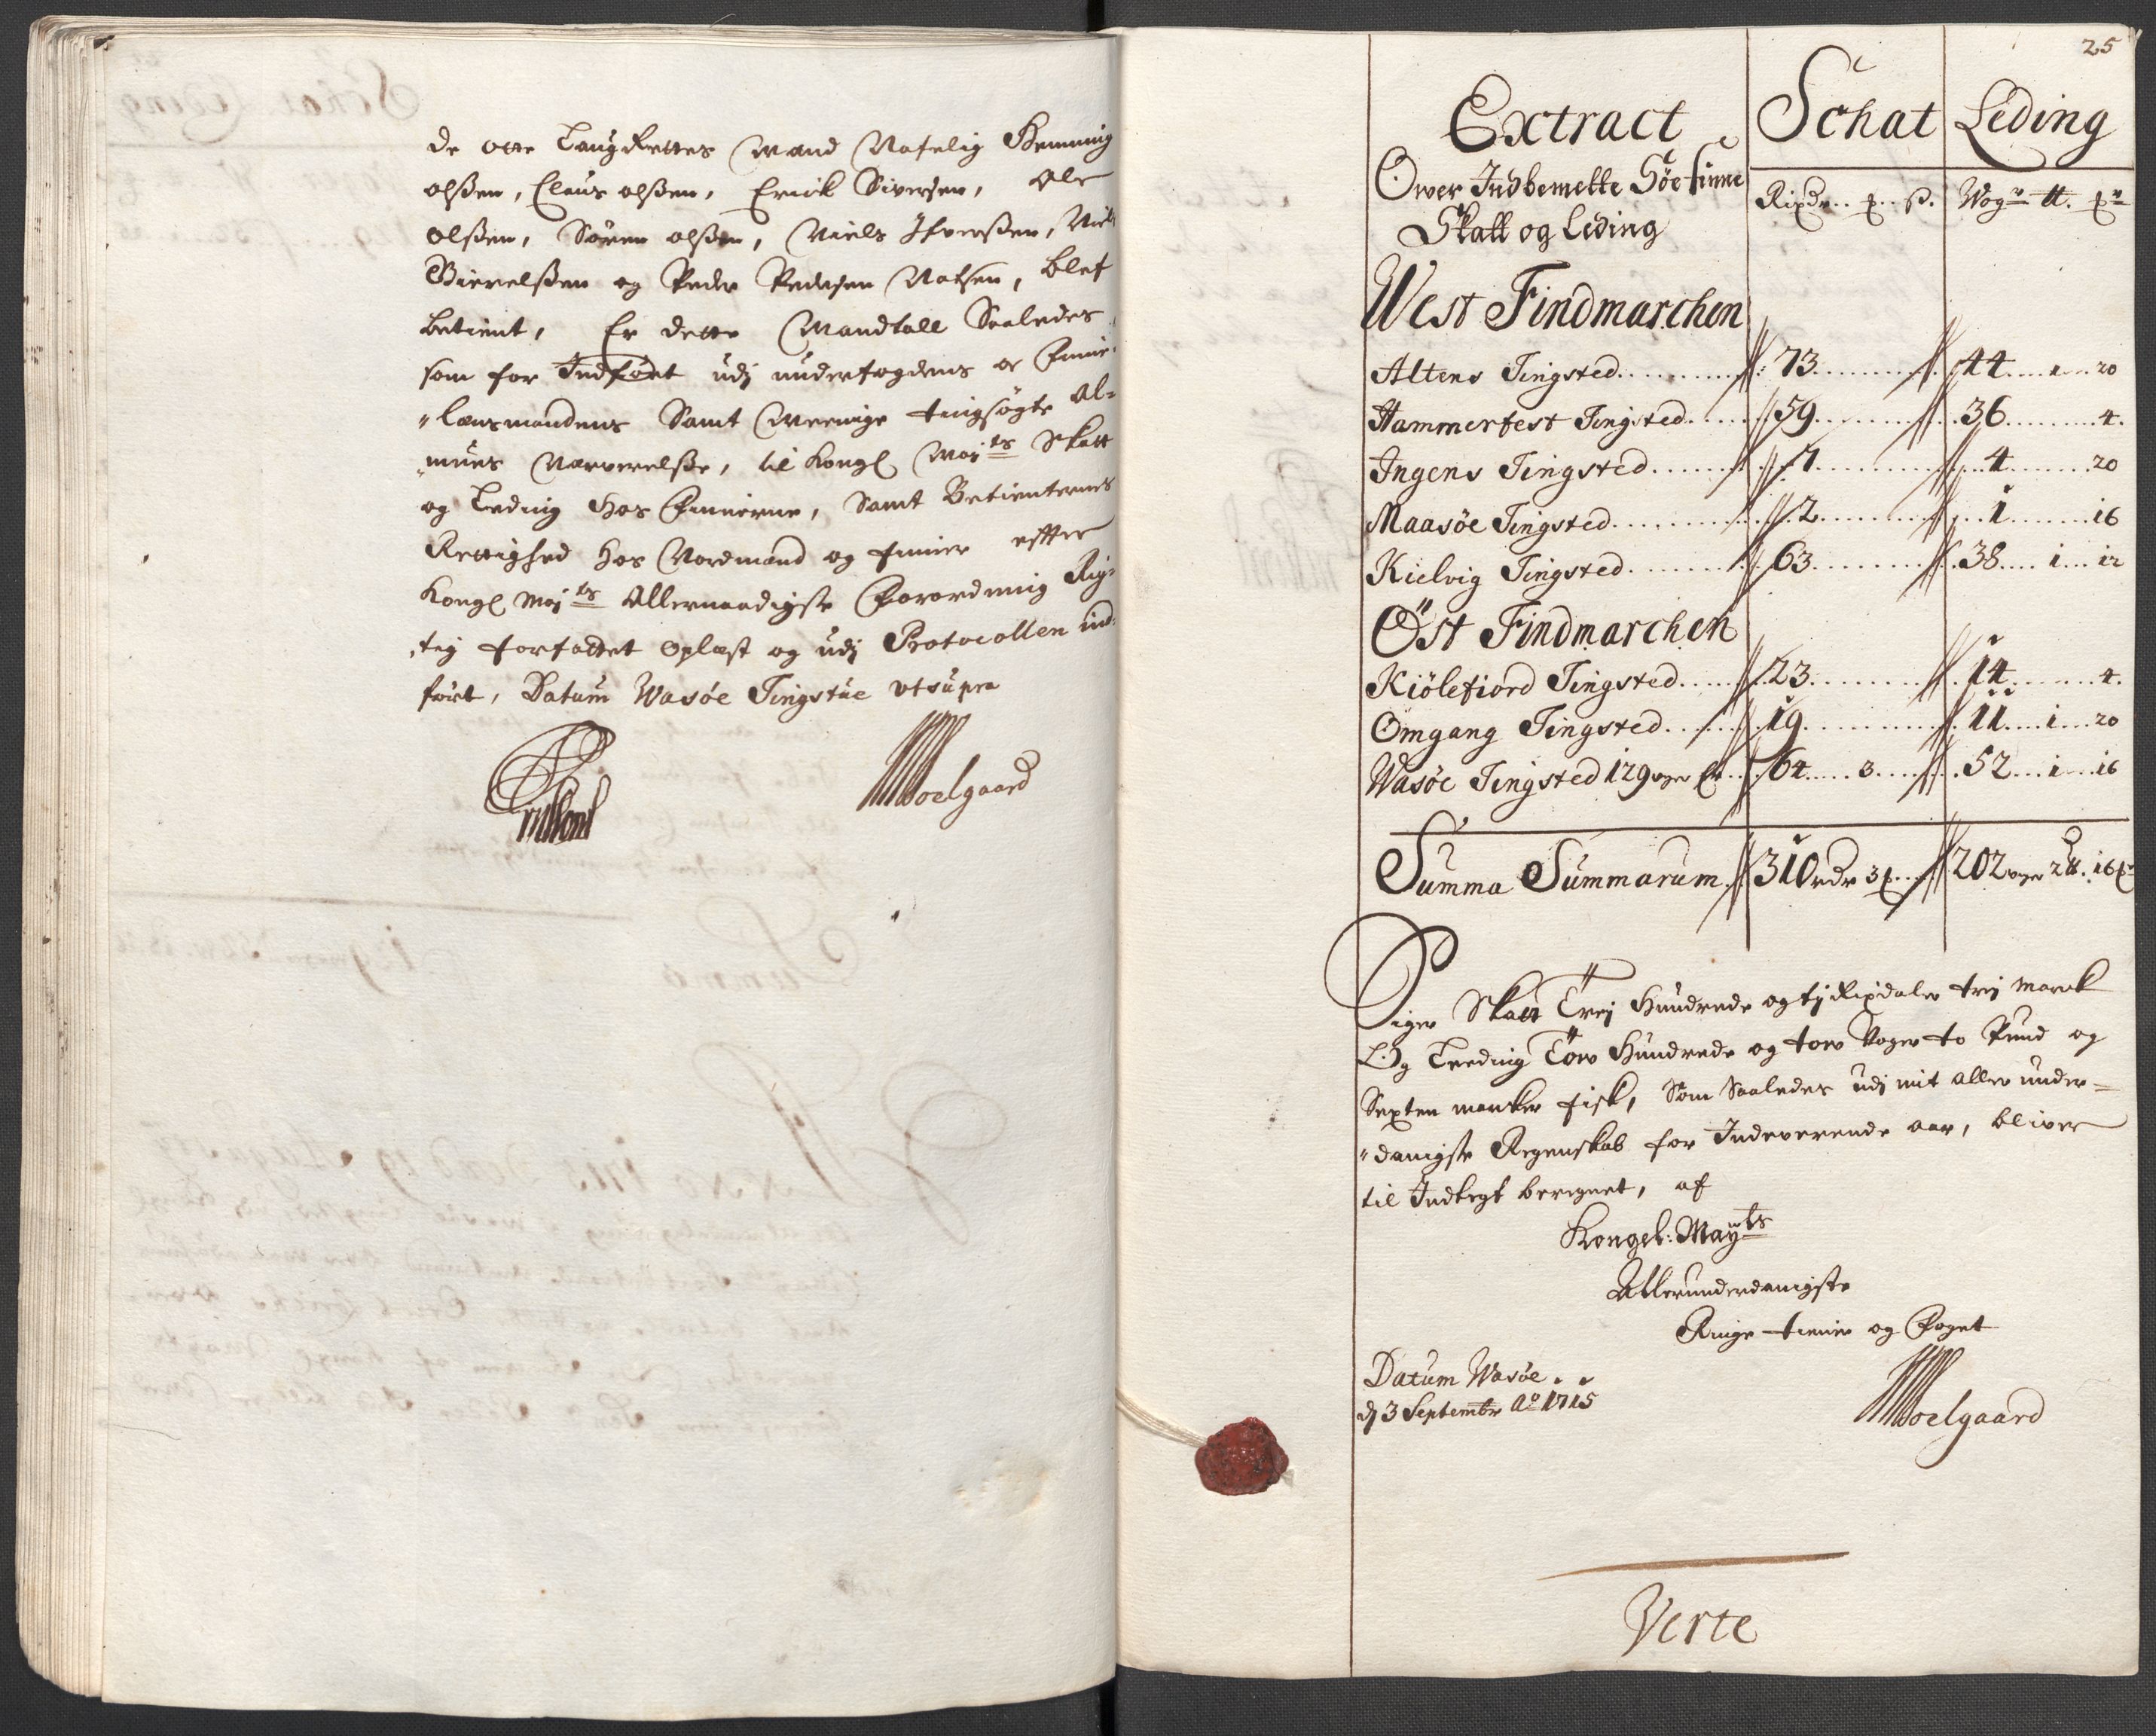 de otte Laug Rettes Mænd Nafnlig Hemming
olßen, Claus olßen, Erick Siversen, Ole
olßen, Søren olßen, Niels Ifverßen, Niels
og Peder Pedersen Natsen, blef
betient, Er dette Mandtall Saaledes
som for Indført udj underfogdens oc Finne-
"lensmandens Samt Meenige tingsøgte Al=
"mues Nærverelße, til Kongl May:ts Skatt
og Leding hos Finnerne, Samt Betienternes
Rettighed hos Nordmænd og finner effter
Kongl May:ts Allernaadigste Forordning Rig=
"tig forfattet Oplæst og udj Protocollen ind=
ført, Datum Wasöe Tingstüe ut supra
Soelgaard
25
Extract
Schat
Leding
Over Indbemelte Söe finne
Skatt og Leding
Rixdr. . ß.
Wogr ℔.
West Findmarchen
Altens Tingsted 73 44 1 20
Hammerfest Tingsted 59 36 4.
Ingens Tingsted 7 4 20
Maasöe Tingsted 2 1 16
Kielvig Tingsted 63 38 1 12
Öst Findmarchen
Kiölefiord Tingsted 23 14 4.
Omgang Tingsted 19 11 1 20
Wasöe Tingsted 129 64 3 52 1 16
Summa Summarum 310 rdr 3 202 2 ℔. 16
Siger Skatt Trej Hundrede og tj Rixdaler trej marck
Og Leeding Tow Hundrede og tow Voger to Pund og
Sexten marker fisk, Som Saaledes udj mit aller under=
"danigste Regenskab for Indeverende aar, bliver
til Indtegt beregnet, af
Kongel: May:ts
Allerunderdanigste
Ringe tiener og Foget
Datum Wasöe
d 3 Septembr Ao 1715
Soelgaard
Verte